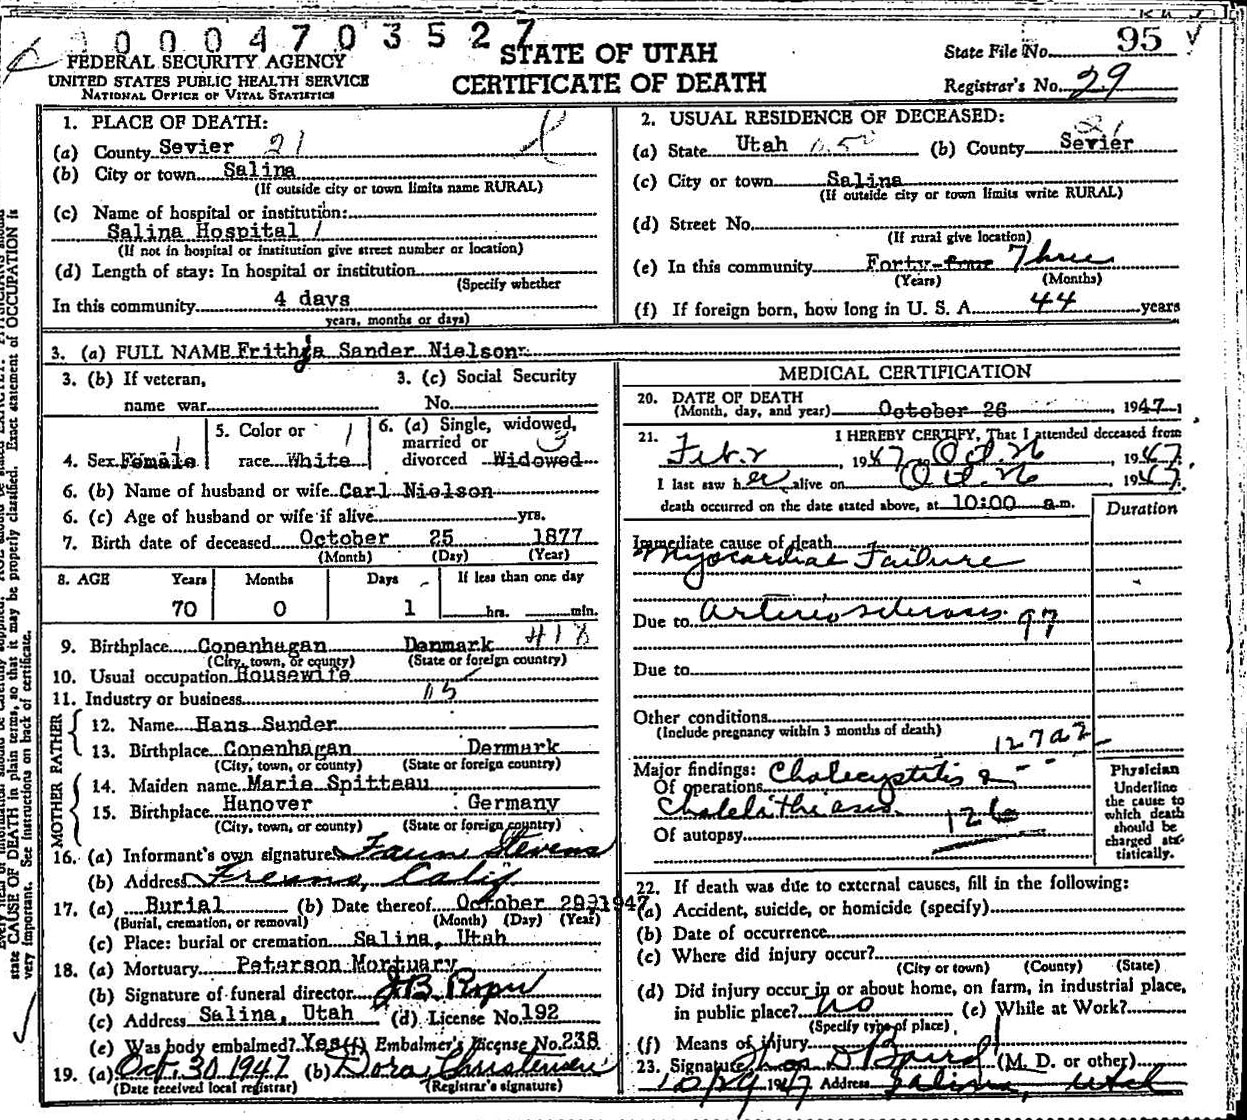 0004703527
FEDERAL SECURITY AGENCY
UNITED STATES PUBLIC HEALTH SERVICE
NATIONAL OFFICE OF VITAL STATISTICS
STATE OF UTAH
CERTIFICATE OF DEATH
State File No. 95
Registrar's No. 29
1. PLACE OF DEATH:
(a) County Sevier 21
(b) City or town Salina
(If outside city or town limits name RURAL)
(c) Name of hospital or institution:
Salina Hospital 1
(If not in hospital or institution give street number or location)
(d) Length of stay: In hospital or institution
(Specify whether
In this community 4 days
years, months or days)
2. USUAL RESIDENCE OF DECEASED:
(a) State Utah (b) County Sevier
(c) City or town Salina
(If outside city or town limits write RURAL)
(d) Street No.
(If rural give location)
(e) In this community Forty-four Three
(Years) (Months)
(f) If foreign born, how long in U. S. A. 44 years
3. (a) FULL NAME Frithja Sander Nielson
3. (b) If veteran, 3. (c) Social Security
name war No.
4. Sex Female
5. Color or race White
6. (a) Single, widowed, married or divorced Widowed
6. (b) Name of husband or wife Carl Nielson
6. (c) Age of husband or wife if alive yrs.
7. Birth date of deceased October 25 1877
(Month) (Day) (Year)
8. AGE Years Months Days If less than one day
70 0 1 hrs. min.
9. Birthplace Copenhagan Denmark 418
(City, town, or county) (State or foreign country)
10. Usual occupation Housewife
11. Industry or business
FATHER
12. Name Hans Sander
13. Birthplace Copenhagan Denmark
(City, town, or county) (State or foreign country)
MOTHER
14. Maiden name Marie Spitteau
15. Birthplace Hanover Germany
(City, town, or county) (State or foreign country)
16. (a) Informant's own signature Faun Stevens
(b) Address Fresno, Calif
17. (a) Burial (b) Date thereof October 29, 1947
(Burial, cremation, or removal) (Month) (Day) (Year)
(c) Place: burial or cremation Salina, Utah
18. (a) Mortuary Peterson Mortuary
(b) Signature of funeral director
(c) Address Salina, Utah (d) License No. 192
(e) Was body embalmed? Yes (f) Embalmer's License No. 238
19. (a) Oct. 30 1947 (b) Dora Christensen
(Date received local registrar) (Registrar's signature)
MEDICAL CERTIFICATION
20. DATE OF DEATH
(Month, day, and year) October 26, 1947
21. I HEREBY CERTIFY, That I attended deceased from
Feb. 2, 1947, Oct. 26, 1947.
I last saw her alive on Oct. 26, 1947.
death occurred on the date stated above, at 10:00 a.m.
Duration
Immediate cause of death
Myocardial Failure
Due to Arteriosclerosis. 97
Due to
Other conditions
(Include pregnancy within 3 months of death)
127a2
Major findings: Cholecystitis &
Of operations
Cholelithiasis. 126
Of autopsy
Physician
Underline
the cause to
which death
should be
charged sta-
tistically.
22. If death was due to external causes, fill in the following:
(a) Accident, suicide, or homicide (specify)
(b) Date of occurrence
(c) Where did injury occur?
(City or town) (County) (State)
(d) Did injury occur in or about home, on farm, in industrial place,
in public place? no (e) While at Work?
(Specify type of place)
(f) Means of injury
23. Signature (M. D. or other)
1947 Address Salina, Utah
state CAUSE OF DEATH in plain terms, so that it may be properly classified. Exact statement of OCCUPATION is
very important. See instructions on back of certificate.